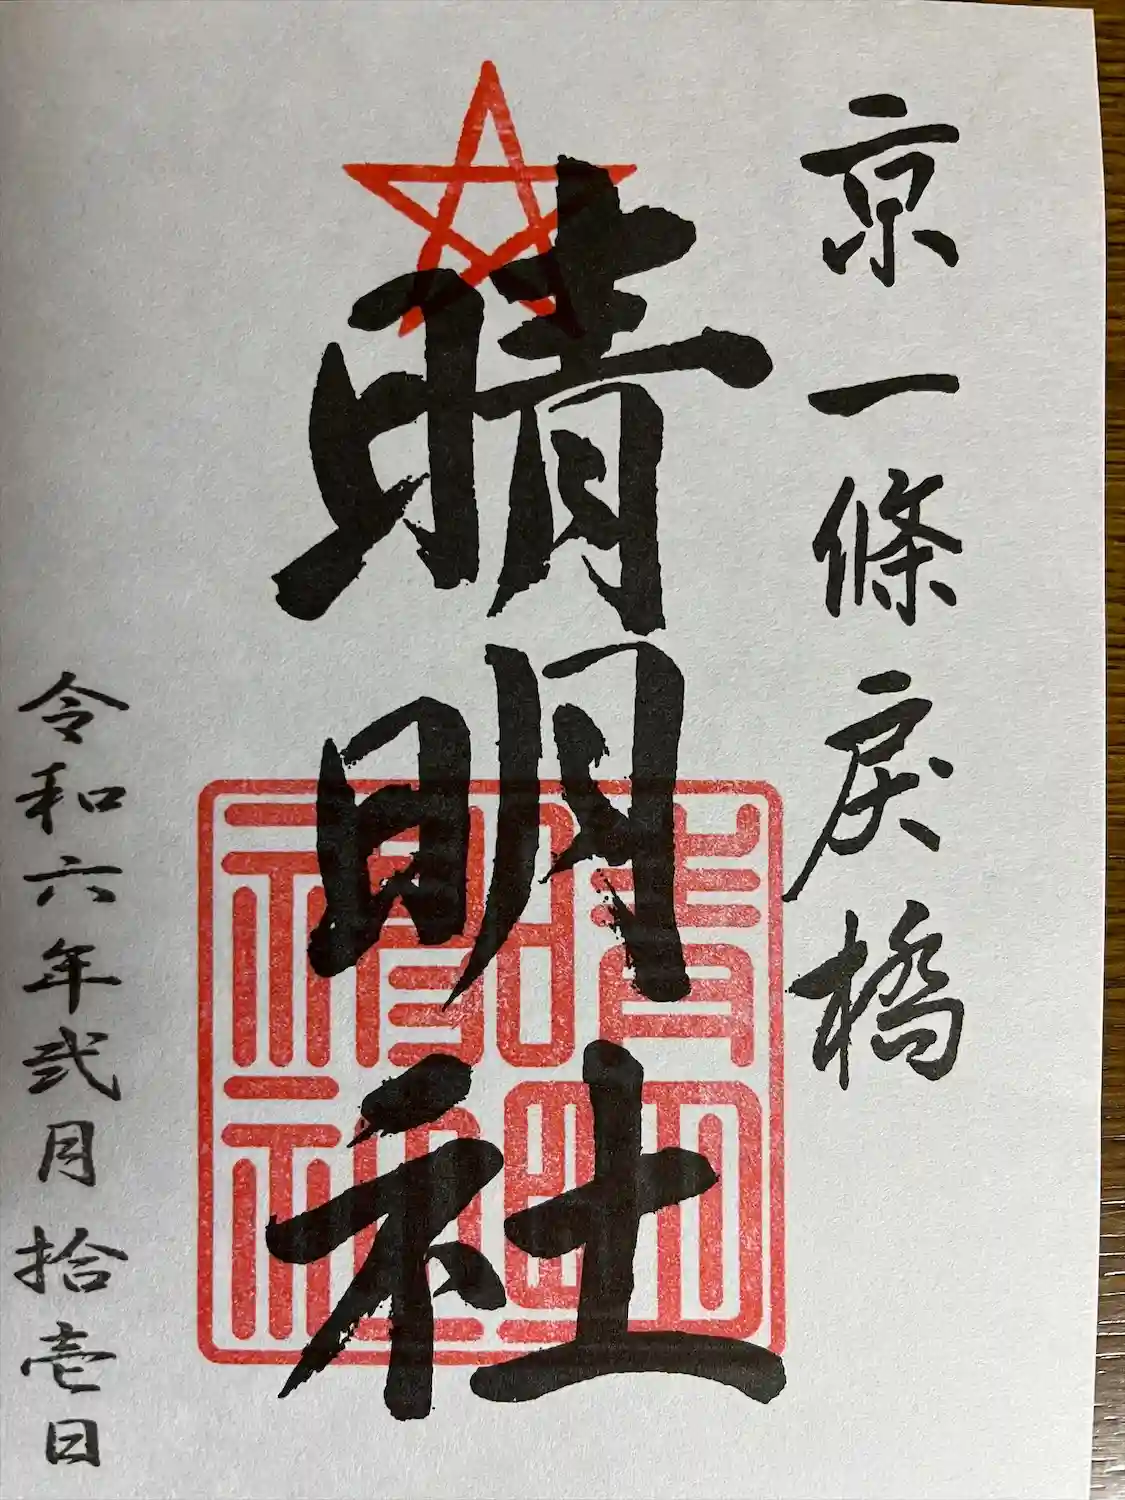 京一條戻橋
晴明社
晴明神社
令和六年弐月拾壱日